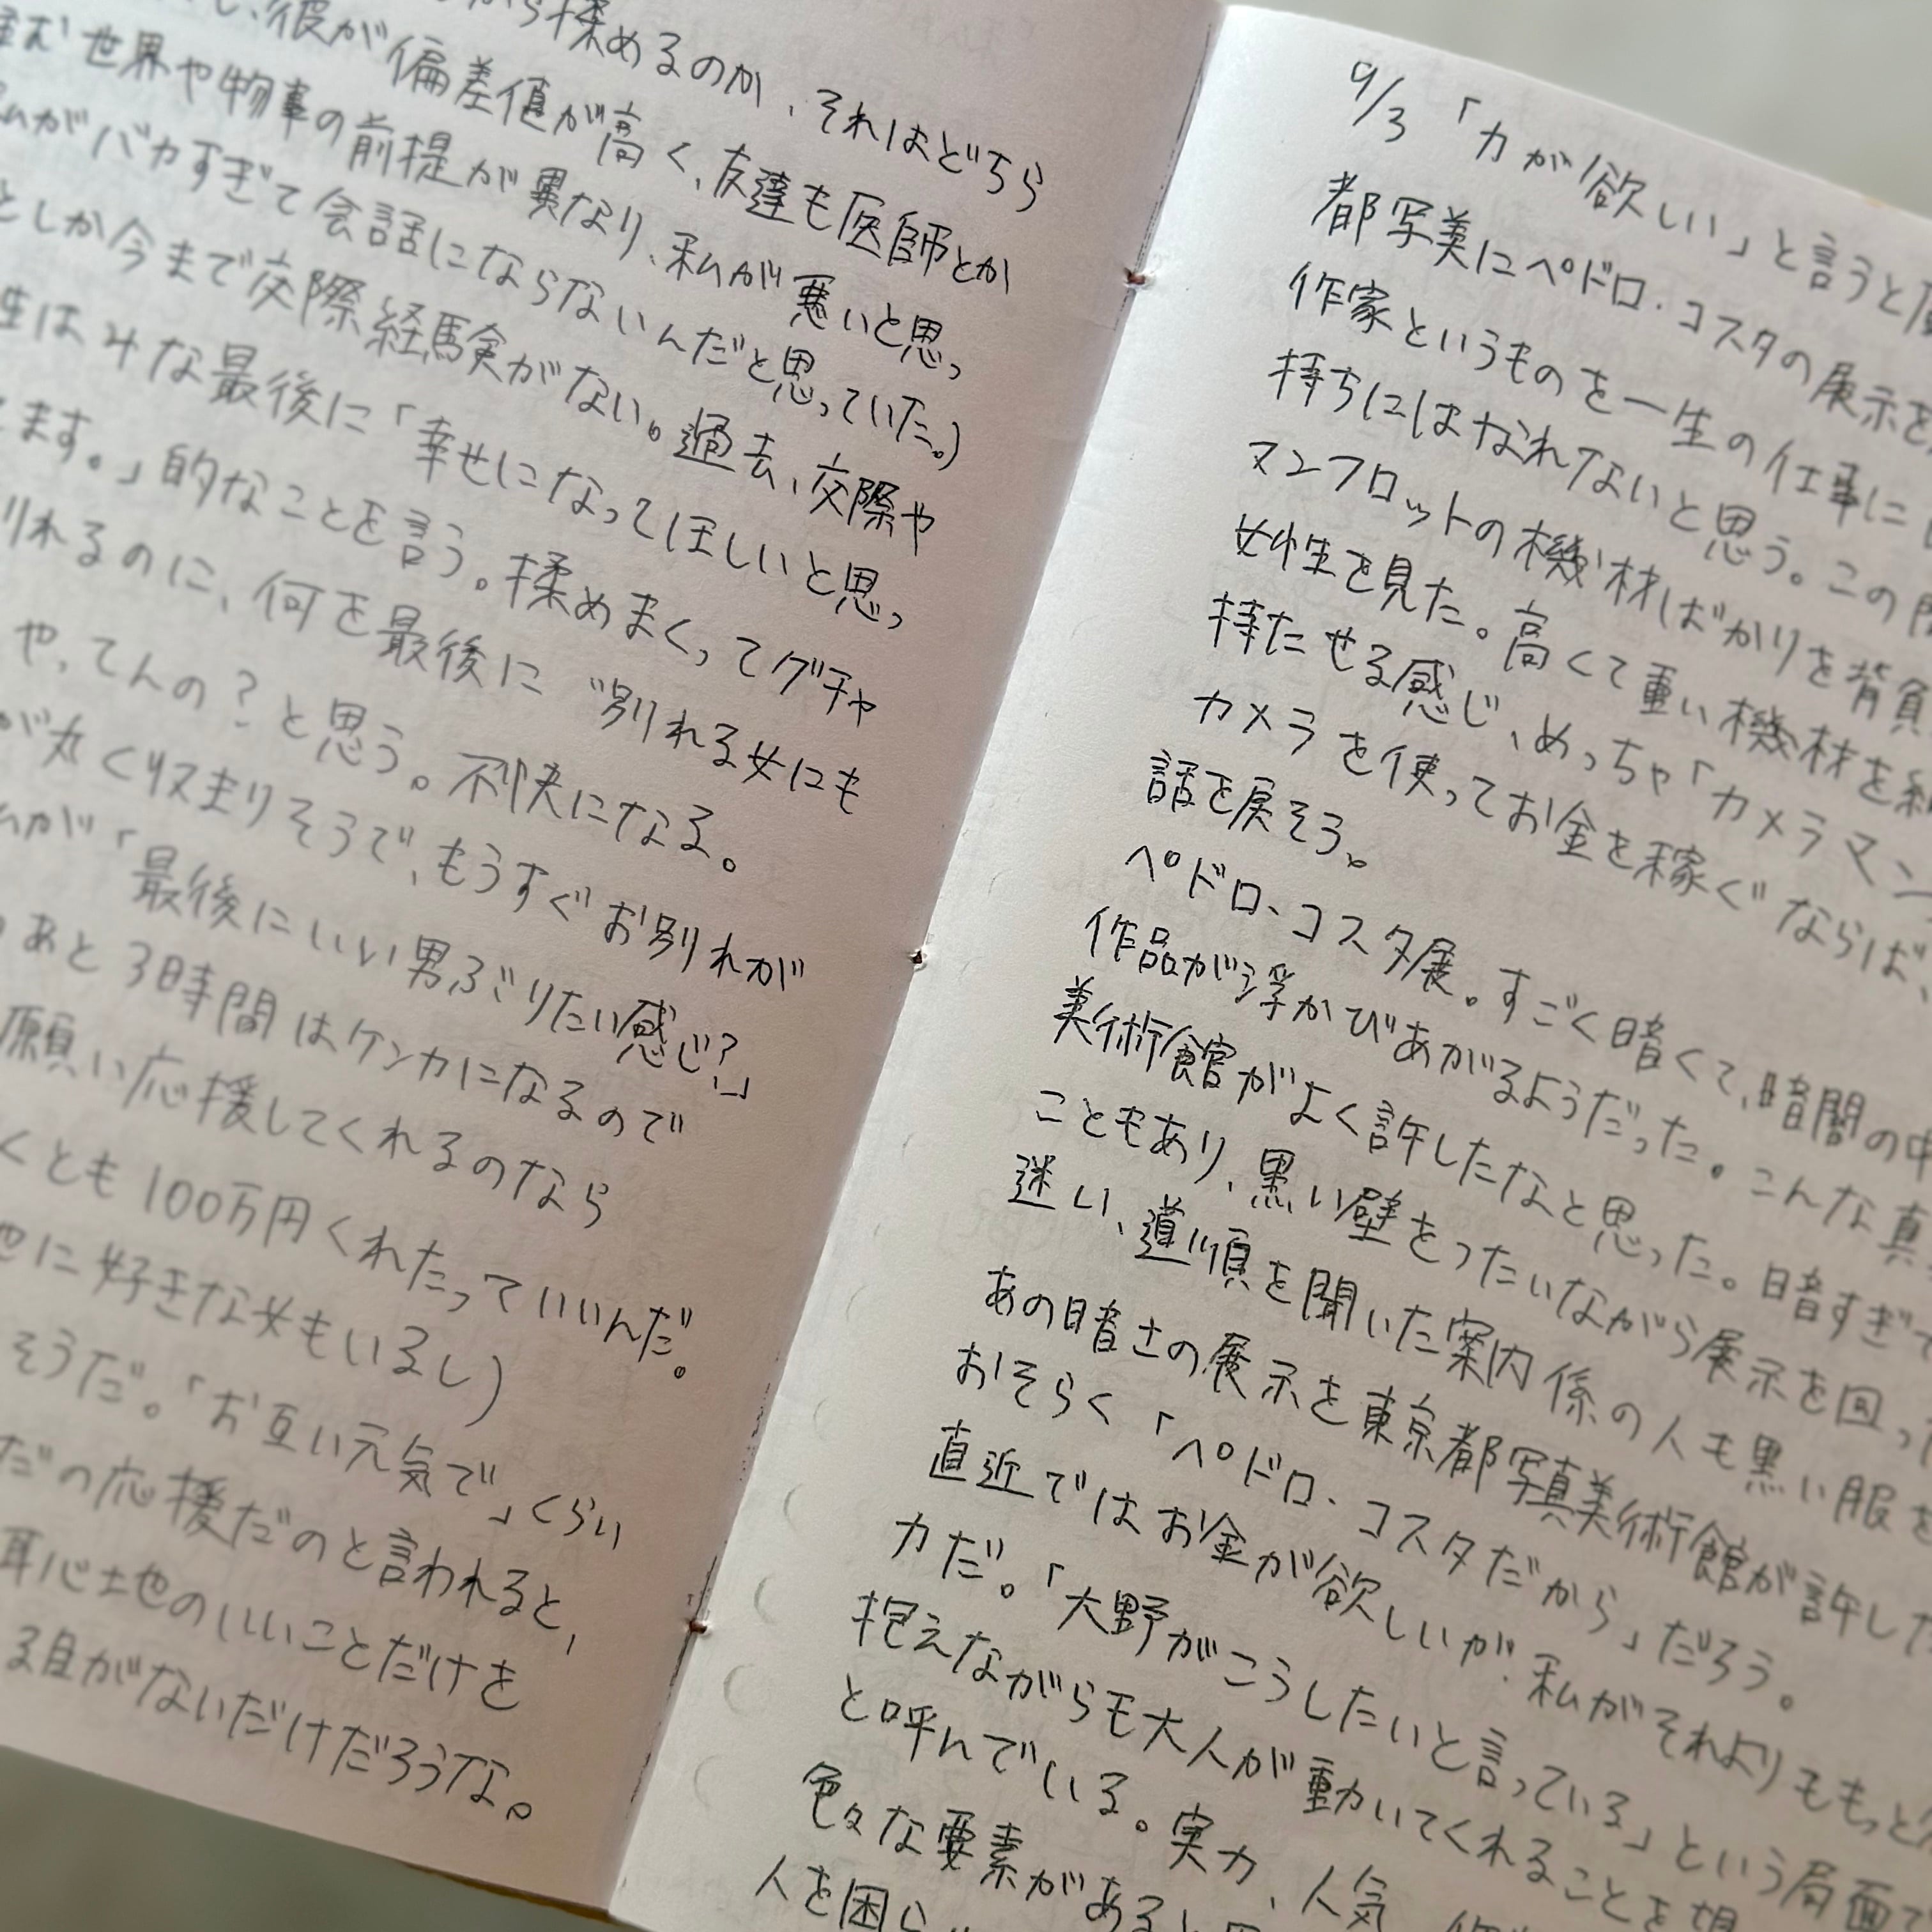 し、彼が偏差値が高く、友達も医師とか
から揉めるのか、それはどちら
世界や物事の前提が異なり、私が悪いと思っ
私がバカすぎて会話にならないんだと思っていた。)
としか今まで交際経験がない。過去、交際や
性はみな最後に「幸せになってほしいと思っ
ます。」的なことを言う。揉めまくってグチャ
れるのに、何を最後に〝別れる女にも
やってんの?と思う。不快になる。
が丸く収まりそうで、もうすぐお別れが
私が「最後にいい男ぶりたい感じ?」
あと3時間はケンカになるので
願い応援してくれるのなら
くとも100万円くれたっていいんだ。
他に好きな女もいるし)
そうだ。「お互い元気で」くらい
だの応援だのと言われると、
耳心地のいいことだけを
がないだけだろうな。
9/3 「力が欲しい」と言うと
都写美にペドロ・コスタの展示を
作家というものを一生の仕事に
持ちにはなれないと思う。この
マンフロットの機材ばかりを背負
女性を見た。高くて重い機材を
持たせる感じ、めっちゃ「カメラマン
カメラを使ってお金を稼ぐならば、
話を戻そう。
ペドロ、コスタ展。すごく暗くて、暗闇の中
作品が浮かびあがるようだった。こんな真
美術館がよく許したなと思った。暗すぎて
こともあり、黒い壁をつたいながら展示を回っ
迷い、道順を聞いた案内係の人も黒い服を
あの暗さの展示を東京都写真美術館が許した
おそらく「ペドロ、コスタだから」だろう。
直近ではお金が欲しいが、私がそれよりももっと
力だ。「大野がこうしたいと言っている」という局面で
抱えながらも大人が動いてくれることを
と呼んでいる。実力、人気
色々な要素がある
人を困ら